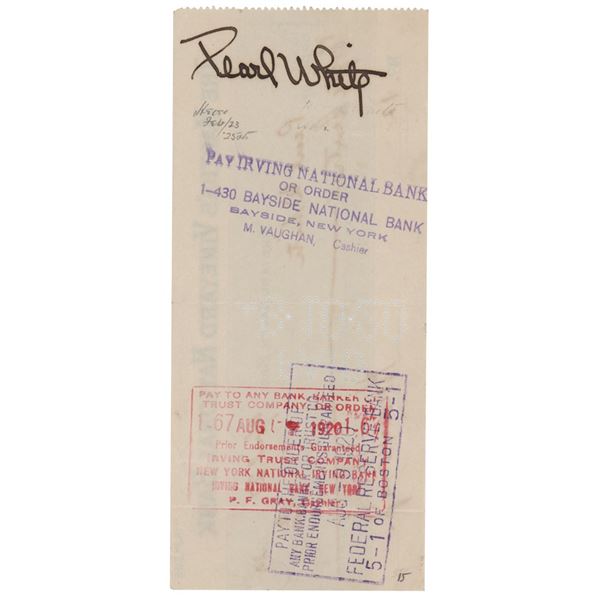 Pearl White
Feb/23
PAY IRVING NATIONAL BANK
OR ORDER
1-430 BAYSIDE NATIONAL BANK
BAYSIDE, NEW YORK
M. VAUGHAN, Cashier
PAY TO ANY BANK, BANKER OR
TRUST COMPANY, OR ORDER
1-67 AUG 1920 1-67
Prior Endorsements Guaranteed
IRVING TRUST COMPANY
NEW YORK NATIONAL IRVING BANK
IRVING NATIONAL BANK, NEW YORK
P. F. GRAY, Cashier
PAY TO THE ORDER OF
ANY BANK, BANKER OR TRUST CO.
PRIOR ENDORSEMENTS GUARANTEED
AUG 1920
FEDERAL RESERVE BANK
5-1 OF BOSTON 5-1
VINEYARD NA
15